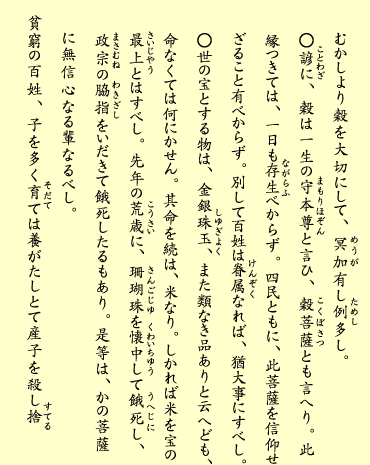 むかしより穀を大切にして、冥加有し例多し。
〇諺に、穀は一生の守本尊と言ひ、穀菩薩とも言へり。此
縁つきては、一日も存生べからず。四民ともに、此菩薩を信仰せ
ざること有べからず。別して百姓は眷属なれば、猶大事にすべし。
〇世の宝とする物は、金銀珠玉、また類なき品ありと云へども、
命なくては何にかせん。其命を続は、米なり。しかれば米を宝の
最上とはすべし。先年の荒歳に、珊瑚珠を懐中して餓死し、
政宗の脇指をいだきて餓死したるもあり。是等は、かの菩薩
に無信心なる輩なるべし。
貧窮の百姓、子を多く育ては養がたしとて産子を殺し捨